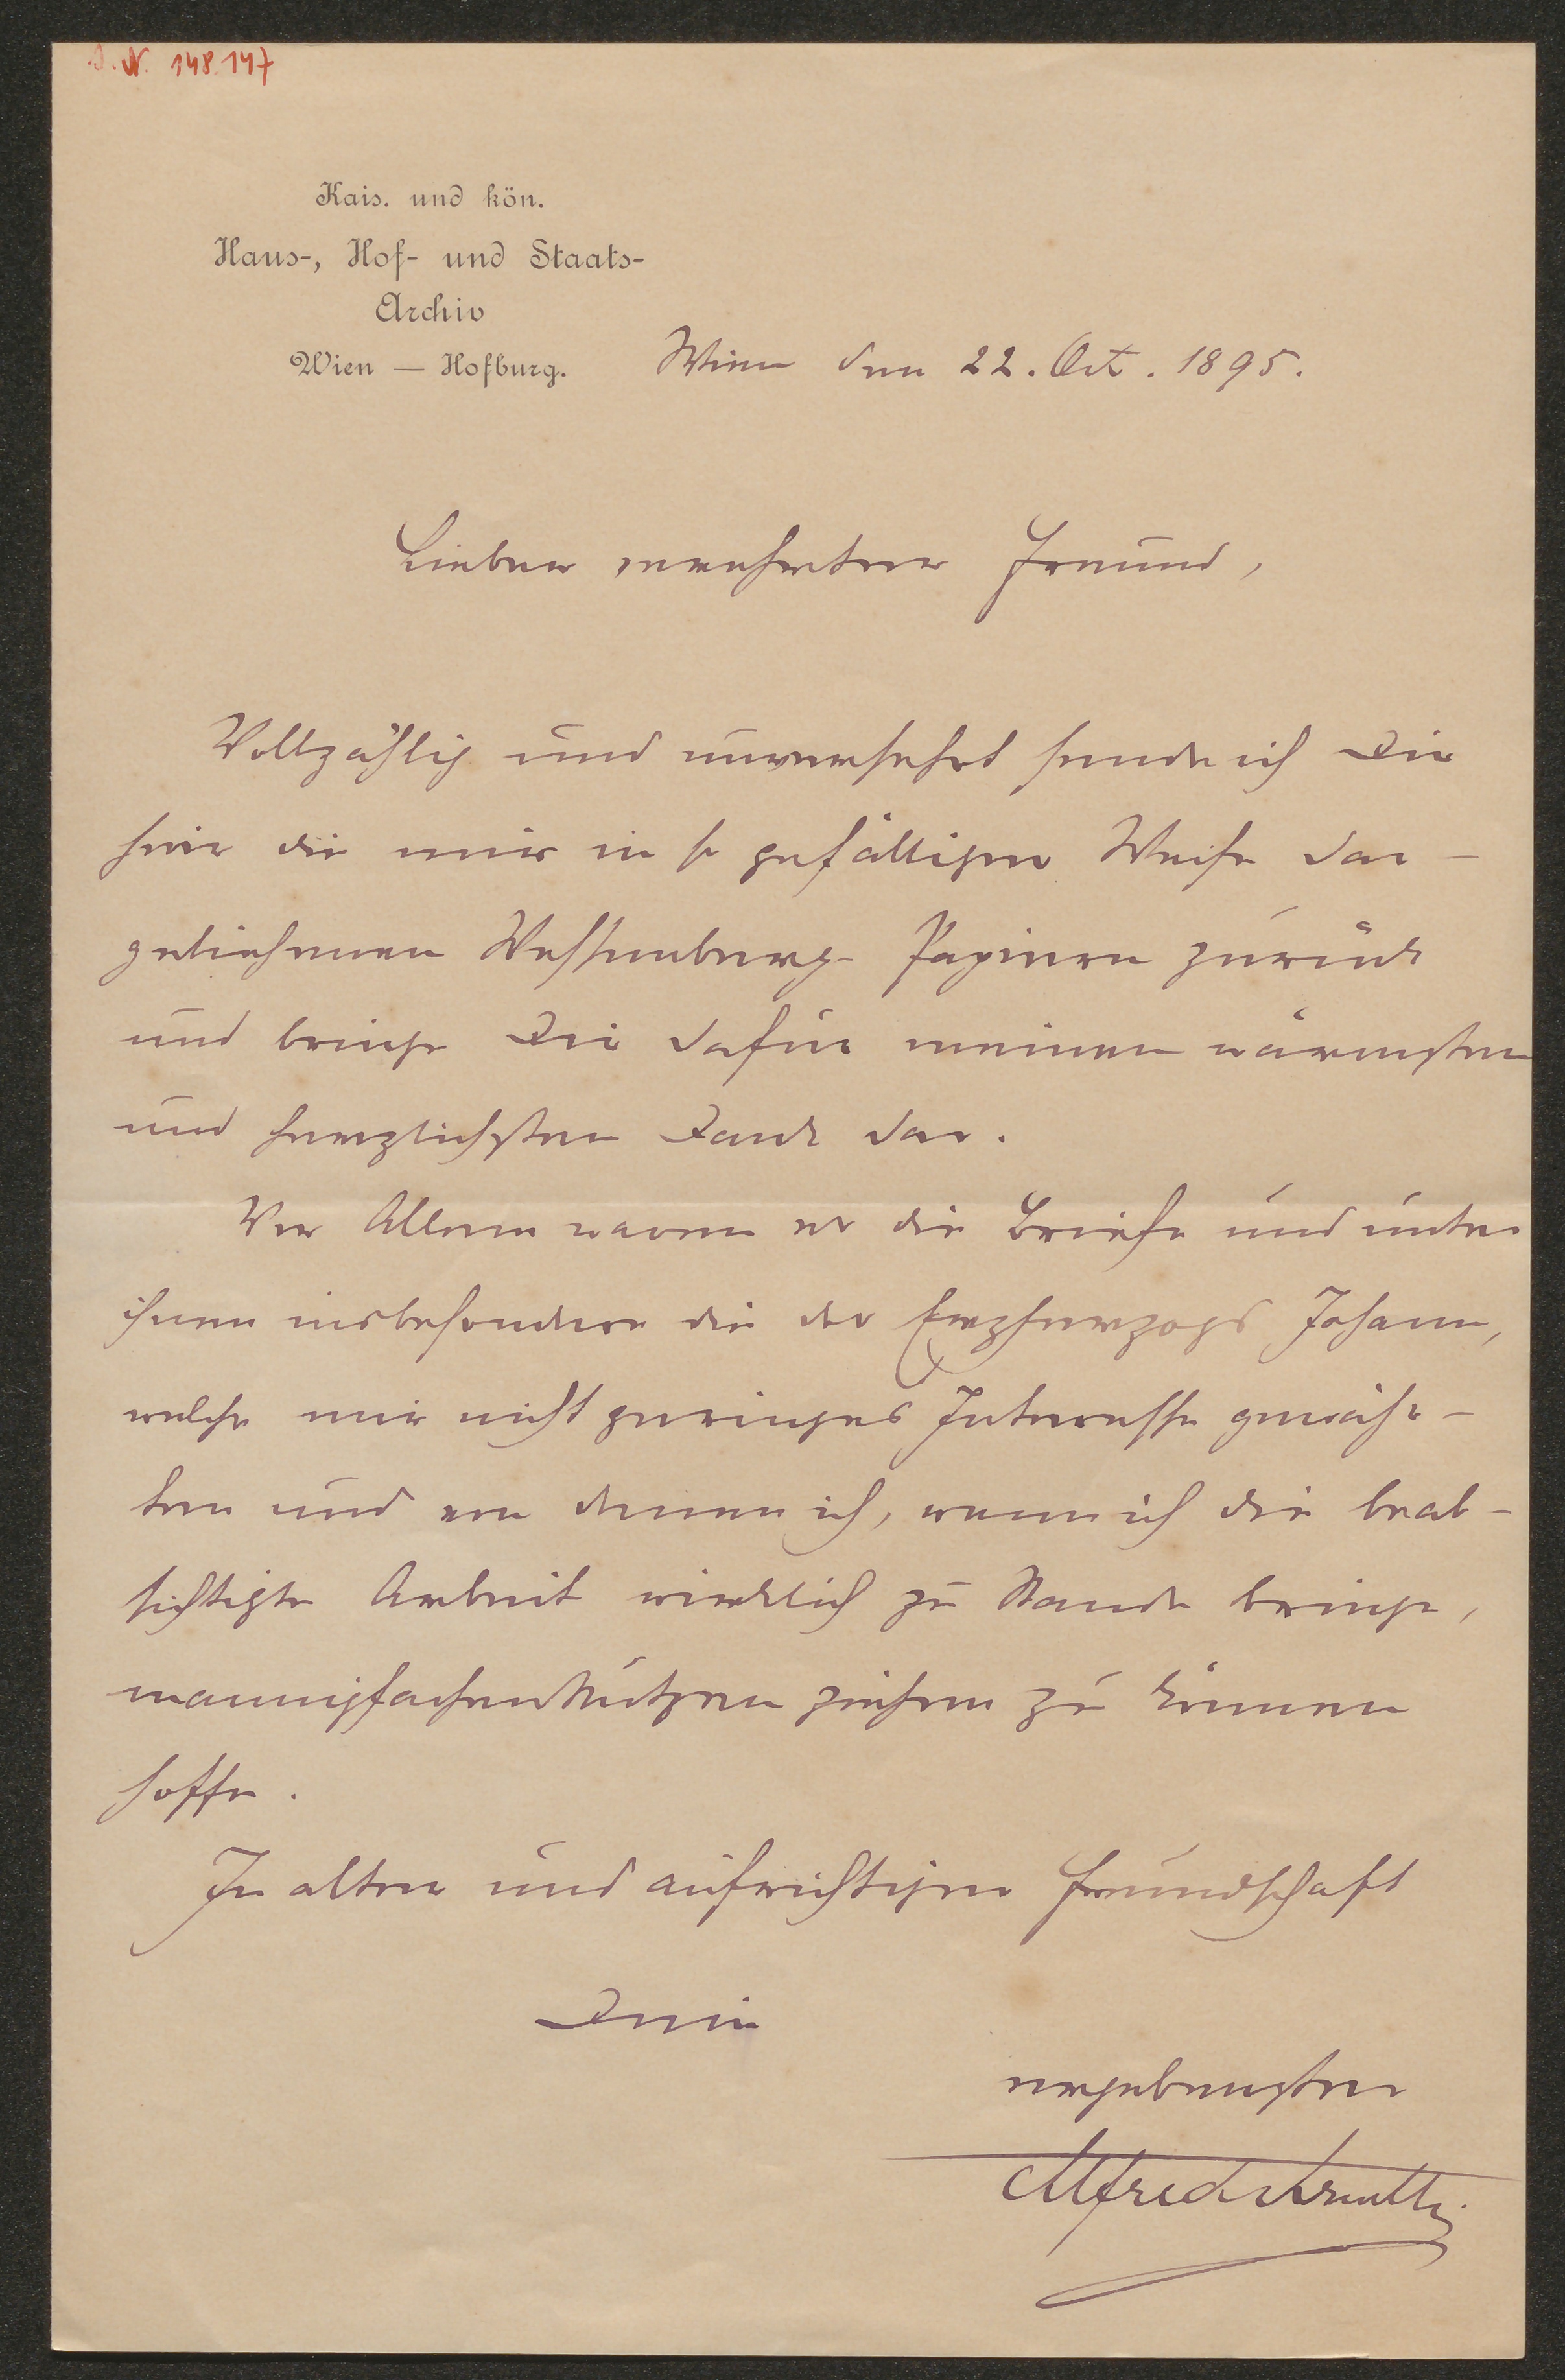 I. N. 148.147
Kais. und kön.
Haus-, Hof- und Staats-
Archiv
Wien — Hofburg.
Wien den 22. Oct. 1895.
Lieber verehrter Freund,
Vollzählig und unversehrt sende ich Dir
hier die mir in so gefälliger Weise dar-
geliehenen Wessenberg-Papiere zurück
und bringe Dir dafür meinen wärmsten
und herzlichsten Dank dar.
Vor Allem waren es die Briefe und unter
ihnen insbesondere die des Erzherzogs Johann,
welche mir nicht geringes Interesse gewähr-
ten und von denen ich, wenn ich die beab-
sichtigte Arbeit wirklich zu Stande bringe,
mannigfachen Nutzen ziehen zu können
hoffe.
In alter und aufrichtiger Freundschaft
Dein
ergebenster
Alfred Arneth